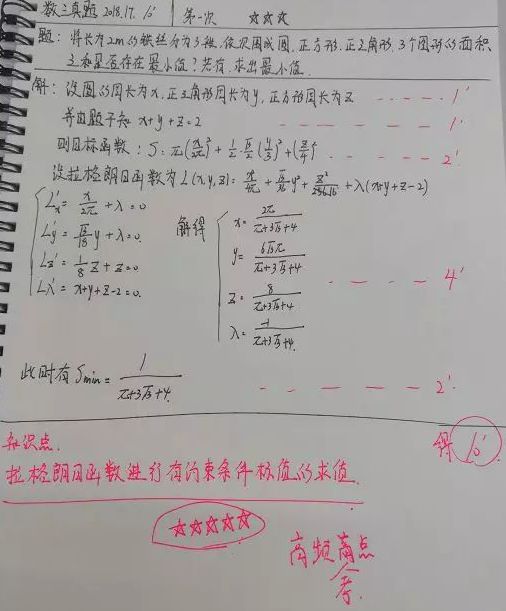 数三真题 2018.17. 10' 第一次 ☆☆☆
题: 将长为2m的铁丝分为3段,依次围成圆,正方形,正三角形,3个图形的面积
之和是否存在最小值?若有,求出最小值.
解: 设圆的周长为x,正三角形周长为y,正方形周长为z ----- 1'
并由题干知 x+y+z=2 ----- 1'
则目标函数: S=π(x/2π)²+1/2·√3/2(y/3)²+(z/4)² --- 2'
设拉格朗日函数为 L(x,y,z)= x²/4π+√3/36y²+z²/16+λ(x+y+z-2)
Lx'=x/2π+λ=0
Ly'=√3/18y+λ=0.
Lz'=1/8z+z=0
Lλ'=x+y+z-2=0.
解得
x=2π/π+3√3+4
y=6√3/π+3√3+4
z=8/π+3√3+4
λ=-1/π+3√3+4.
---- 4'
此时有 Smin=1/π+3√3+4. ----- 2'
得 10'
知识点.
拉格朗日函数进行有约束条件极值的求值.
☆☆☆☆☆
高频高点
考.